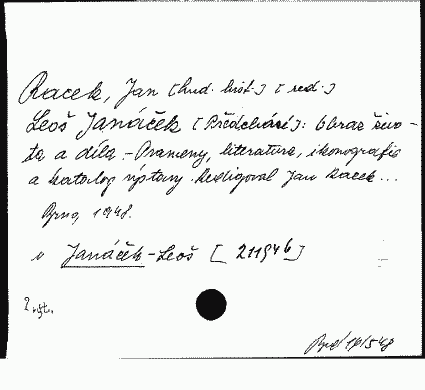 Racek, Jan [hud. hist.] [red.]
Leoš Janáček [Předchází]: Obraz živo-
ta a díla. - Prameny, literatura, ikonografie
a katalog výstavy. Redigoval Jan Racek...
Brno, 1948.
v Janáček-Leoš [211946]
2 výt.